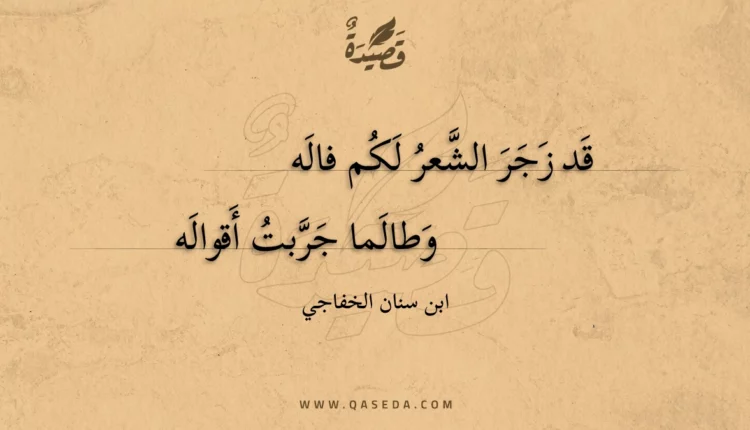 قَصِيْدَةٌ
قَد زَجَرَ الشَّعرُ لَكُم فالَه
وَطالَما جَرَّبتُ أَقوالَه
ابن سنان الخفاجي
WWW.QASEDA.COM